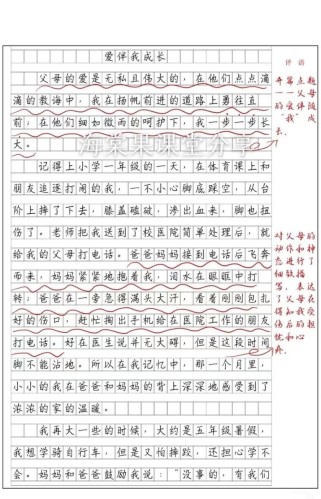 评语
爱伴我成长
父母的爱是无私且伟大的，在他们点点滴
滴的教诲中，我在扬帆前进的道路上勇往直
前，在他们细如微雨的呵护下，我一步一步长
大。
海棠果课堂分享
开篇点题
——父母
的爱伴随
“我”成
长。
记得上小学一年级的一天，在体育课上和
朋友追逐打闹的我，一不小心脚底踩空，从台
阶上摔了下去，膝盖磕破，渗出血来，脚也扭
伤了。老师把我送到了校医院简单处理后，就
给我的父母打电话。妈妈接到电话后飞奔
而来，妈妈紧紧地抱着我，泪水在眼眶中打
转；爸爸在一旁急得满头大汗，看着刚刚包扎
好的伤口，赶忙掏出手机给在医院工作的朋友
打电话。好在医生说并无大碍，但是这段时间
脚不能沾地。所以在我记忆中，那一个月里，
小小的我在爸爸和妈妈的背上深深地感受到了
浓浓的家的温暖。
对父母的
动作和神
态进行了
细致描
写，表达
了父母在
得知我受
伤后的担
忧和心
疼。
我再大一些的时候，大约是五年级暑假，
我想学骑自行车，但是又怕摔跤，还担心学不
会。妈妈和爸爸鼓励我说：“没事的，有我们